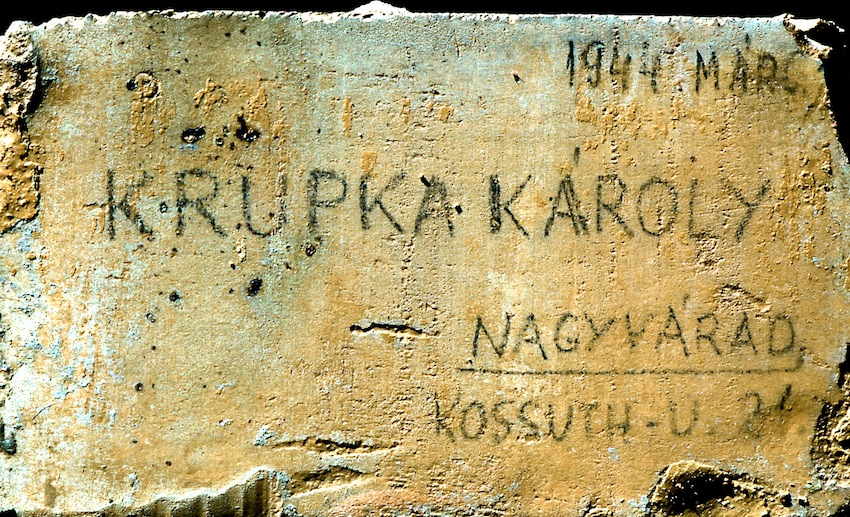 1944 MÁR.
KRUPKA KÁROLY
NAGYVÁRAD
KOSSUTH-U.